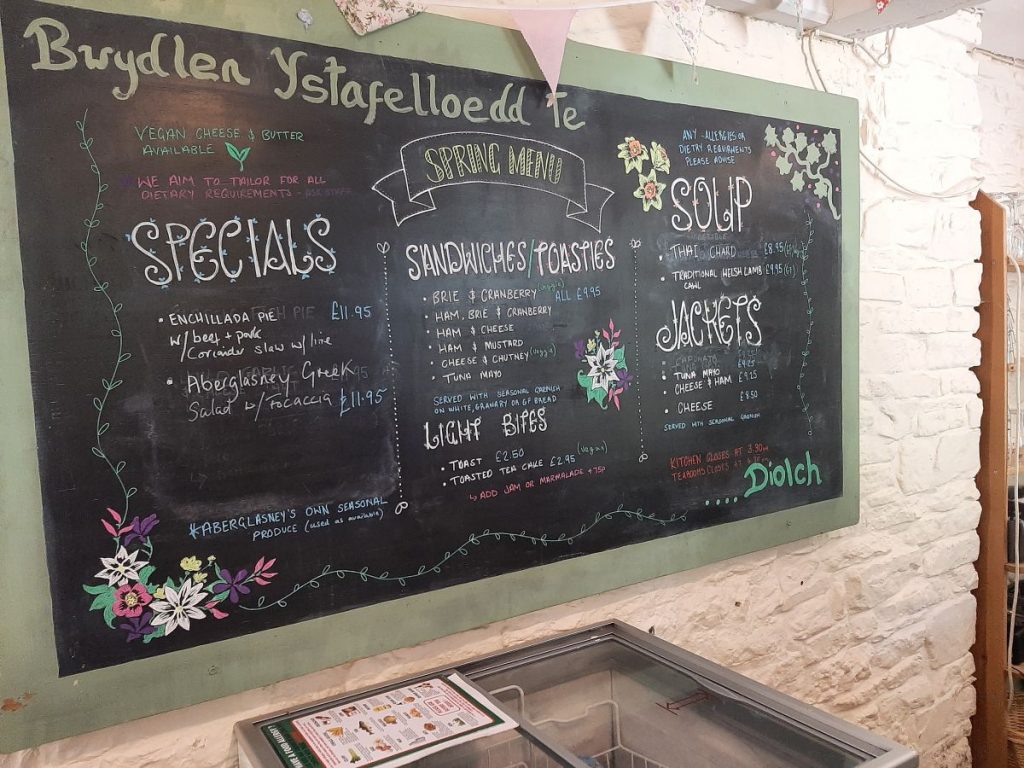 Bwydlen Ystafelloedd Te
VEGAN CHEESE & BUTTER
AVAILABLE
WE AIM TO TAILOR FOR ALL
DIETARY REQUIREMENTS - ASK STAFF
SPECIALS
• ENCHILLADA PIE £11.95
w/ beef + pork
w/ Coriander slaw w/ lime
• Aberglasney Greek
Salad w/ focaccia £11.95
*ABERGLASNEY'S OWN SEASONAL
PRODUCE (used as available)
SPRING MENU
SANDWICHES/TOASTIES
• BRIE & CRANBERRY (veggie) ALL £9.95
• HAM, BRIE & CRANBERRY
• HAM & CHEESE
• HAM & MUSTARD
• CHEESE & CHUTNEY (veggie)
• TUNA MAYO
SERVED WITH SEASONAL GARNISH
ON WHITE, GRANARY OR GF BREAD
LIGHT BITES
• TOAST £2.50 (vegan)
• TOASTED TEA CAKE £2.95
↳ ADD JAM OR MARMALADE + 75p
ANY ALLERGIES OR
DIETRY REQUIRMENTS
PLEASE ADVISE
SOUP
• THAI CHARD £8.95
• TRADITIONAL WELSH LAMB £9.95 (GF)
CAWL
JACKETS
• TUNA MAYO £9.25
CHEESE & HAM £9.25
• CHEESE £8.50
SERVED WITH SEASONAL GARNISH
KITCHEN CLOSES AT 3.30
TEAROOMS CLOSES AT
.... Diolch